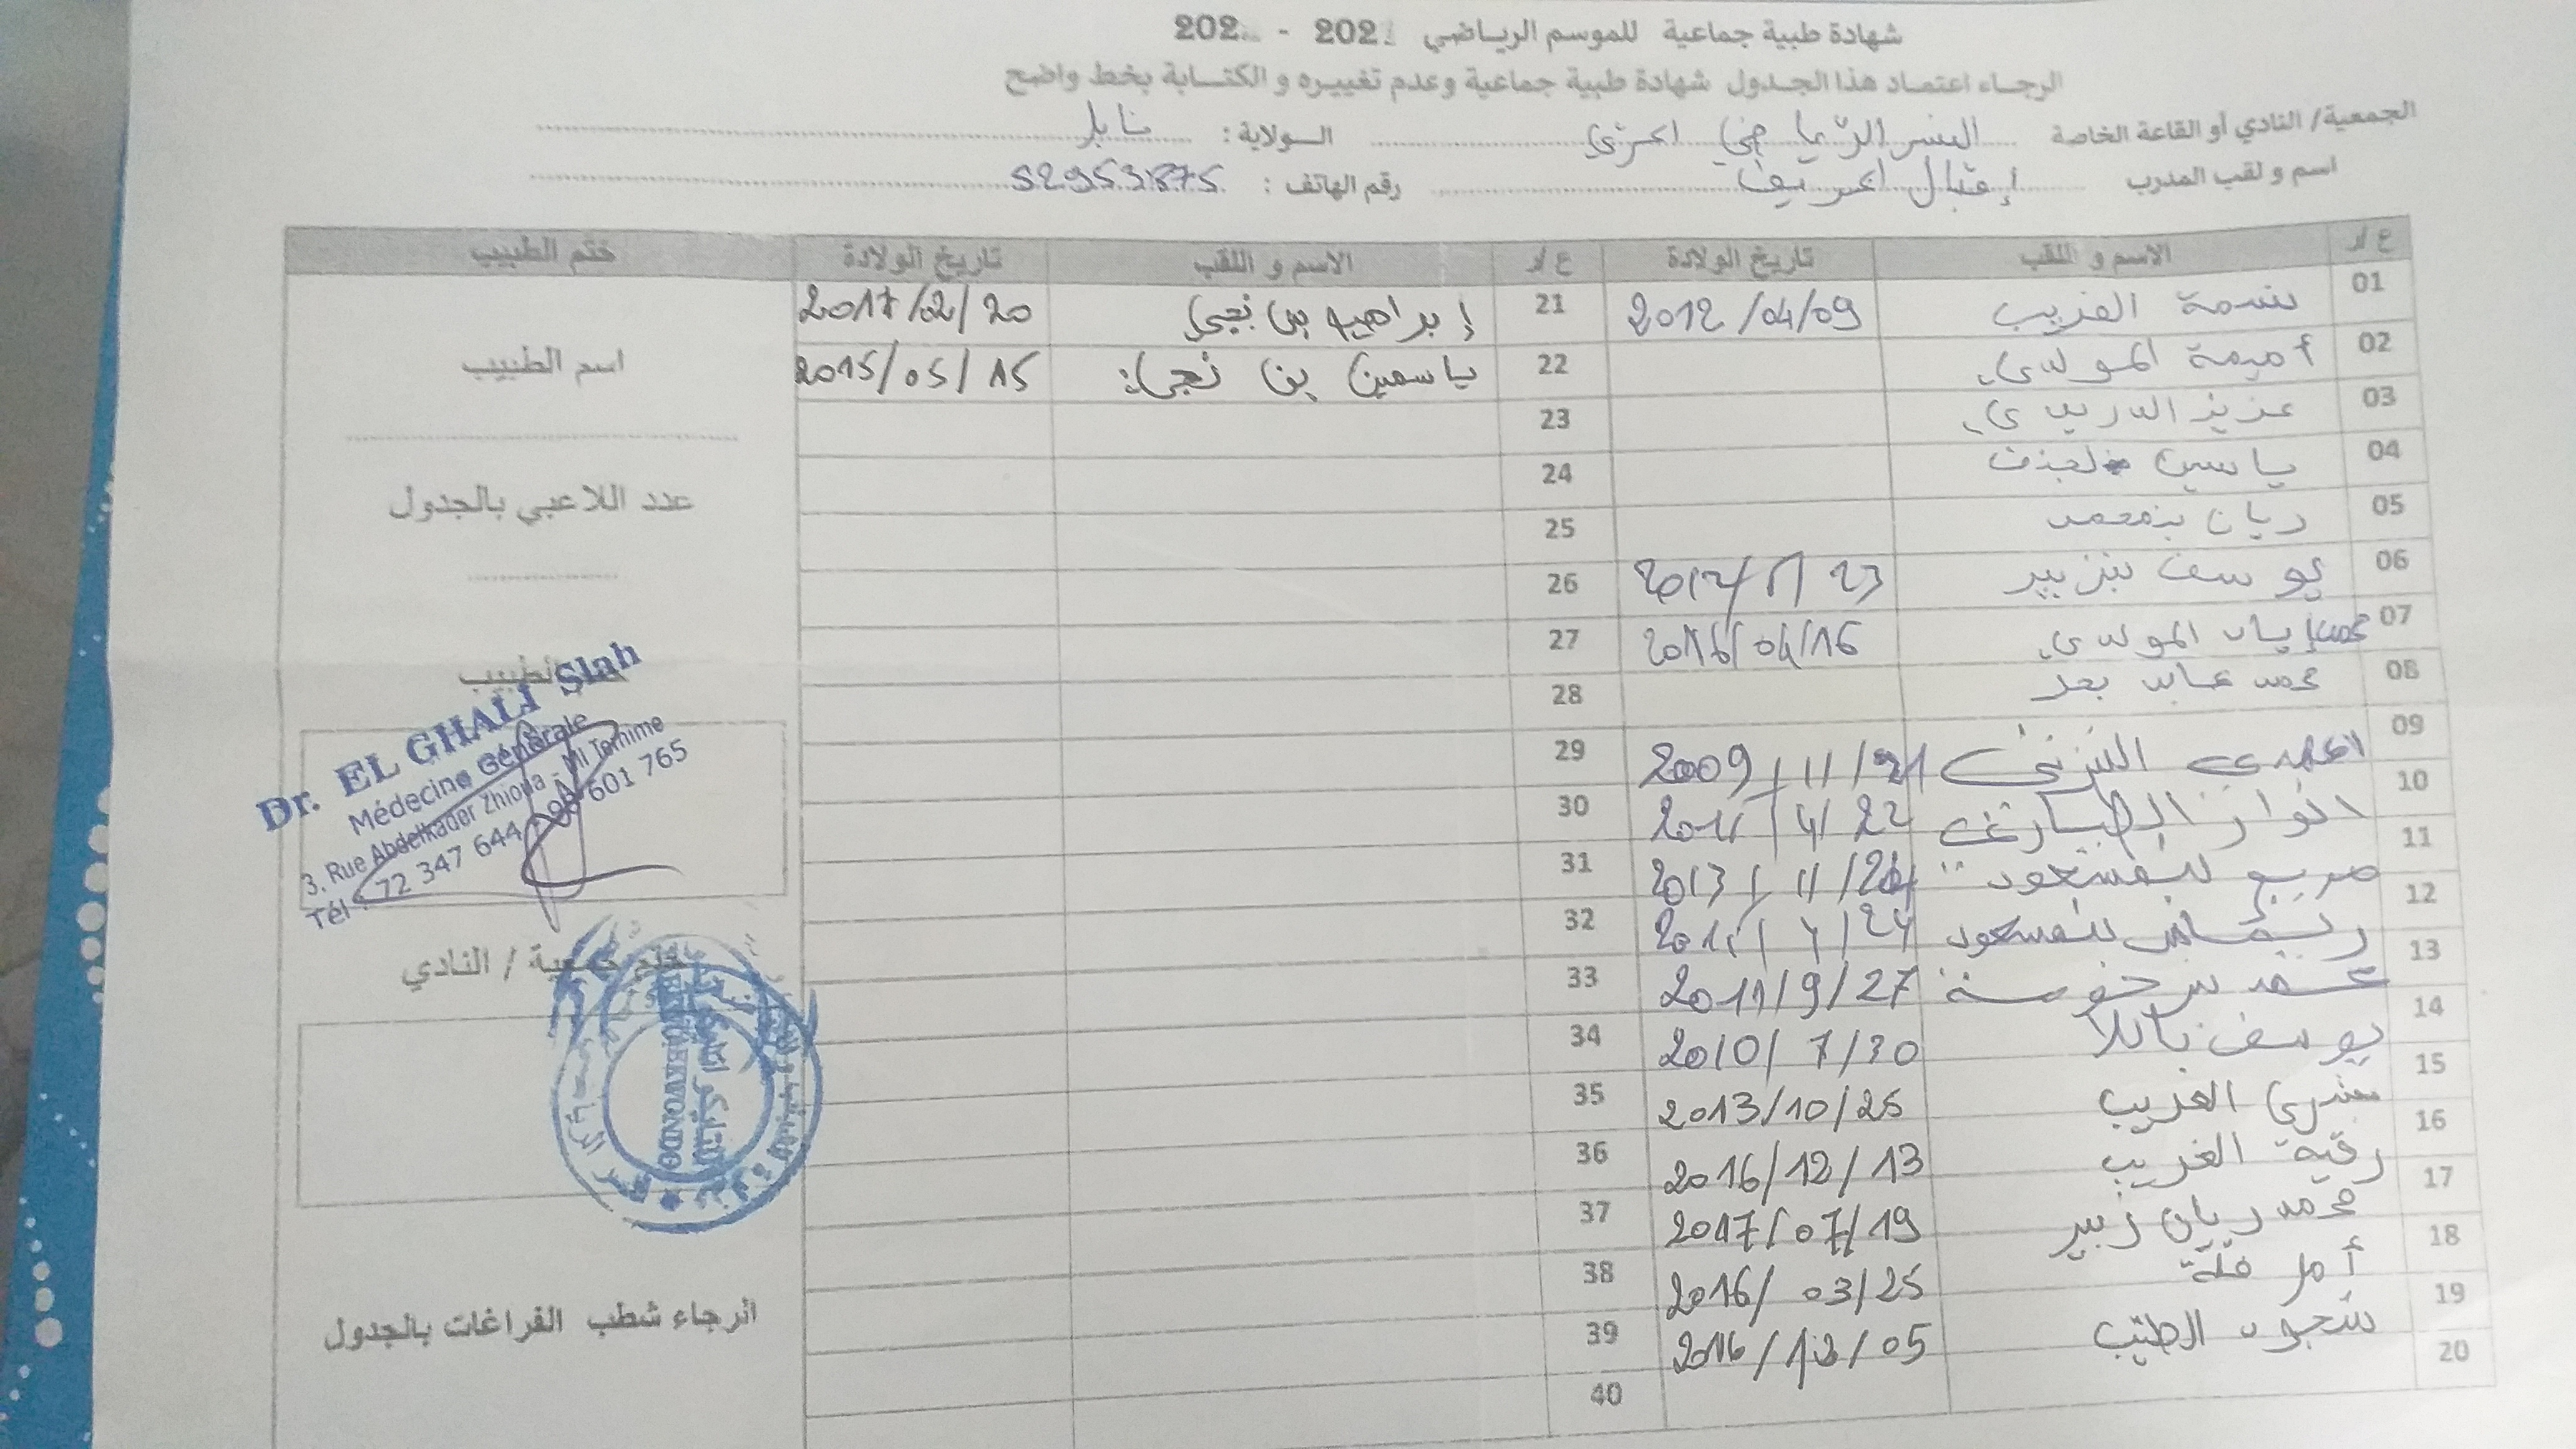 شهادة طبية جماعية للموسم الرياضي 202 - 202
الرجاء اعتماد هذا الجدول شهادة طبية جماعية وعدم تغييره و الكتابة بخط واضح
الجمعية/ النادي أو القاعة الخاصة النسر الرياضي الولاية : نابل
اسم و لقب المدرب إقبال رقم الهاتف : 52953875
ع/ر الاسم و اللقب تاريخ الولادة ع/ر الاسم و اللقب تاريخ الولادة ختم الطبيب
01 بسمة الغريب 2012/04/09 21 إبراهيم بن نجي 2017/02/20
02 أميمة المولدي 22 ياسمين بن نجي 2015/05/15
اسم الطبيب
03 عزيز الدريدي 23
04 ياسين 24
عدد اللاعبي بالجدول
05 ريان بنمحمد 25
06 يوسف بنزبير 26
07 محمد إياد المولدي 2016/04/16 27
08 محمد 28
ختم الطبيب
Dr. EL GHALI Slah
Médecine Générale
3. Rue Abdelkader Zhioua - Ml Temime
Tél : 72 347 644 - 98 601 765
09 المهدي 2009/11/21 29
10 انوار 30
11 مريم بنمسعود 31
12 بنمسعود 32
13 محمد بن خوسة 2011/9/27 33
ختم جمعية / النادي
TAEKWONDO
14 يوسف باللا 2010/7/30 34
15 بشرى الغريب 2013/10/25 35
16 رقية الغريب 2016/12/13 36
17 محمد ريان زبير 2017/07/19 37
18 أمل 2016/03/25 38
19 سجود الطيب 2016/12/05 39
20 40
الرجاء شطب الفراغات بالجدول